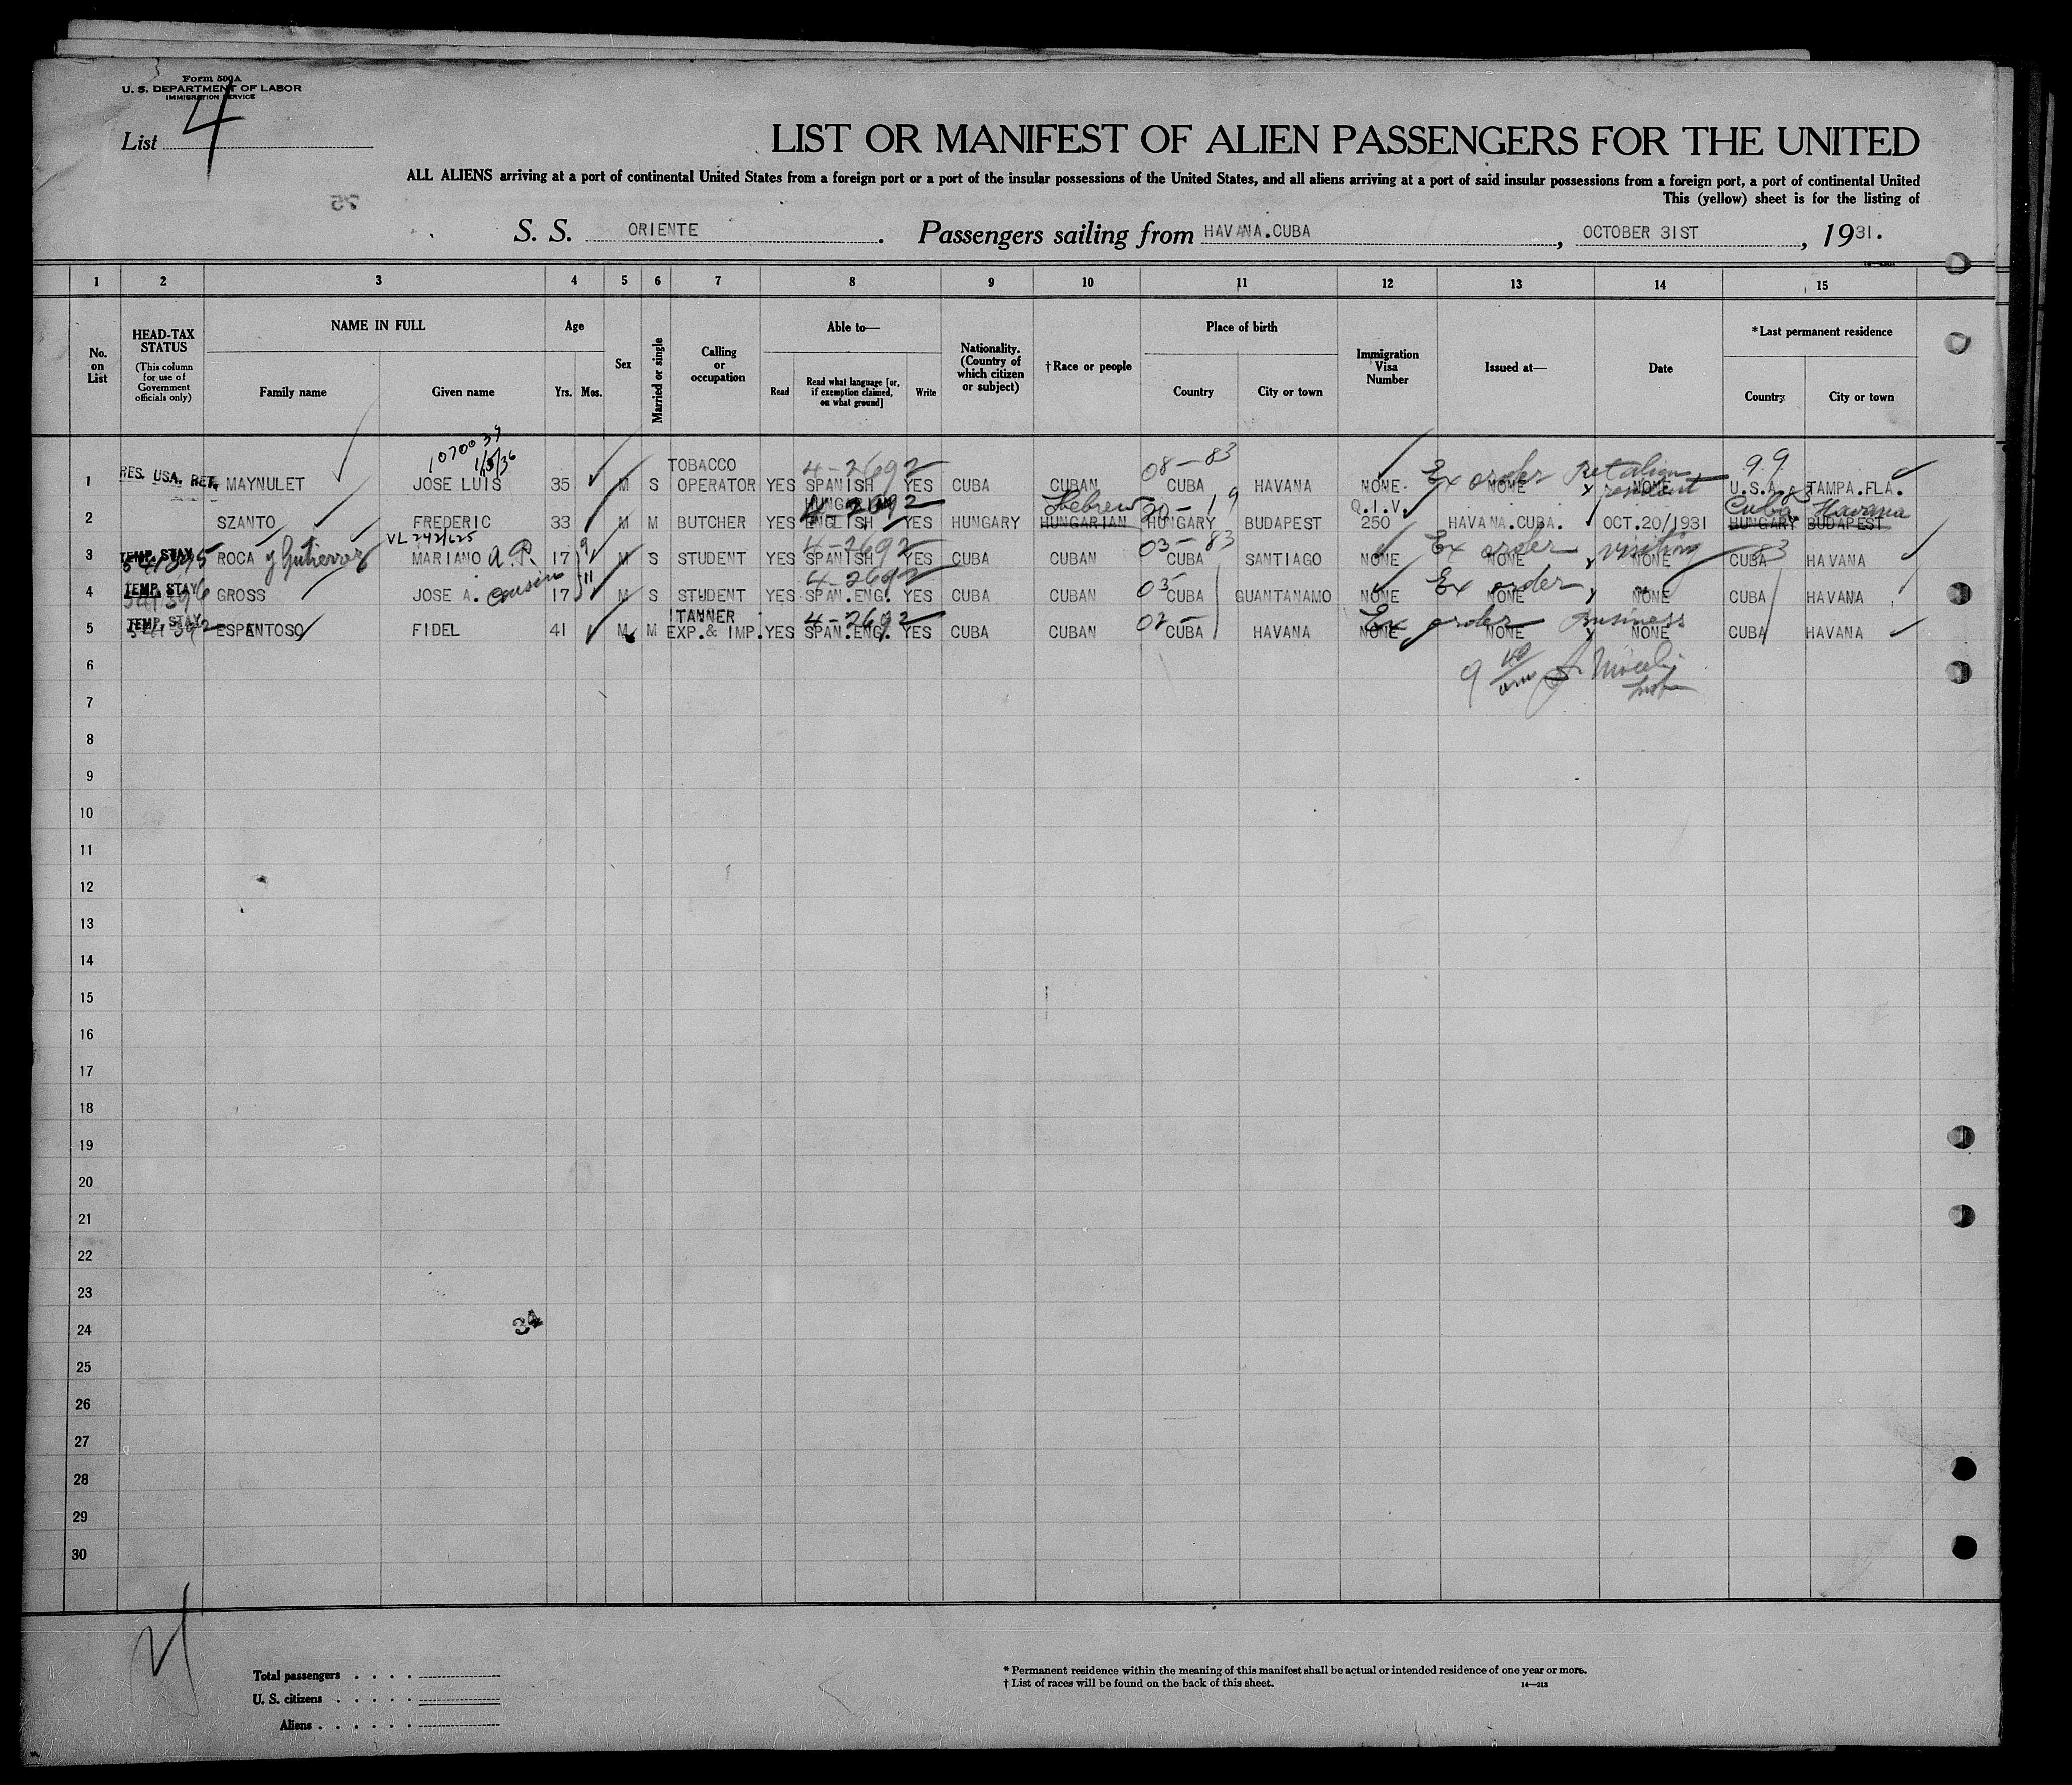 Form 500A
U. S. DEPARTMENT OF LABOR
IMMIGRATION SERVICE
List 4
LIST OR MANIFEST OF ALIEN PASSENGERS FOR THE UNITED
ALL ALIENS arriving at a port of continental United States from a foreign port or a port of the insular possessions of the United States, and all aliens arriving at a port of said insular possessions from a foreign port, a port of continental United
This (yellow) sheet is for the listing of
75
S. S. ORIENTE. Passengers sailing from HAVANA.CUBA, OCTOBER 31ST, 1931.
1 2 3 4 5 6 7 8 9 10 11 12 13 14 15
No. on List
HEAD-TAX STATUS
(This column for use of Government officials only)
NAME IN FULL
Family name Given name
Age
Yrs. Mos.
Sex
Married or single
Calling or occupation
Able to—
Read
Read what language [or, if exemption claimed, on what ground]
Write
Nationality. (Country of which citizen or subject)
†Race or people
Place of birth
Country City or town
Immigration Visa Number
Issued at—
Date
*Last permanent residence
Country City or town
1070037 1/3/36
TOBACCO 4-2692 08-83 Ex order Ret alien resident 99
1 RES. USA. RET. MAYNULET JOSE LUIS 35 M S OPERATOR YES SPANISH YES CUBA CUBAN CUBA HAVANA NONE NONE NONE U.S.A. TAMPA.FLA.
HUNGARIAN 4-2692 Hebrew 20-19 Q.I.V. Cuba Havana
2 SZANTO FREDERIC 33 M M BUTCHER YES ENGLISH YES HUNGARY HUNGARIAN HUNGARY BUDAPEST 250 HAVANA.CUBA. OCT.20/1931 HUNGARY BUDAPEST
VL 242/625 4-2692 03-83 Ex order visiting 83
3 TEMP. STAY ROCA y Gutierrez MARIANO A. P. 17 9 M S STUDENT YES SPANISH YES CUBA CUBAN CUBA SANTIAGO NONE NONE NONE CUBA HAVANA
4-2692 03- Ex order "
4 TEMP. STAY GROSS JOSE A. cousin 17 11 M S STUDENT YES SPAN.ENG. YES CUBA CUBAN CUBA GUANTANAMO NONE NONE NONE CUBA HAVANA
TANNER 4-2692 02- Ex order Business
5 TEMP. STAY ESPANTOSO FIDEL 41 M M EXP.& IMP. YES SPAN.ENG. YES CUBA CUBAN CUBA HAVANA NONE NONE NONE CUBA HAVANA
6
7
8
9
10
11
12
13
14
15
16
17
18
19
20
21
22
23
24
25
26
27
28
29
30
34
Total passengers
U. S. citizens
Aliens
* Permanent residence within the meaning of this manifest shall be actual or intended residence of one year or more.
† List of races will be found on the back of this sheet.
14—213